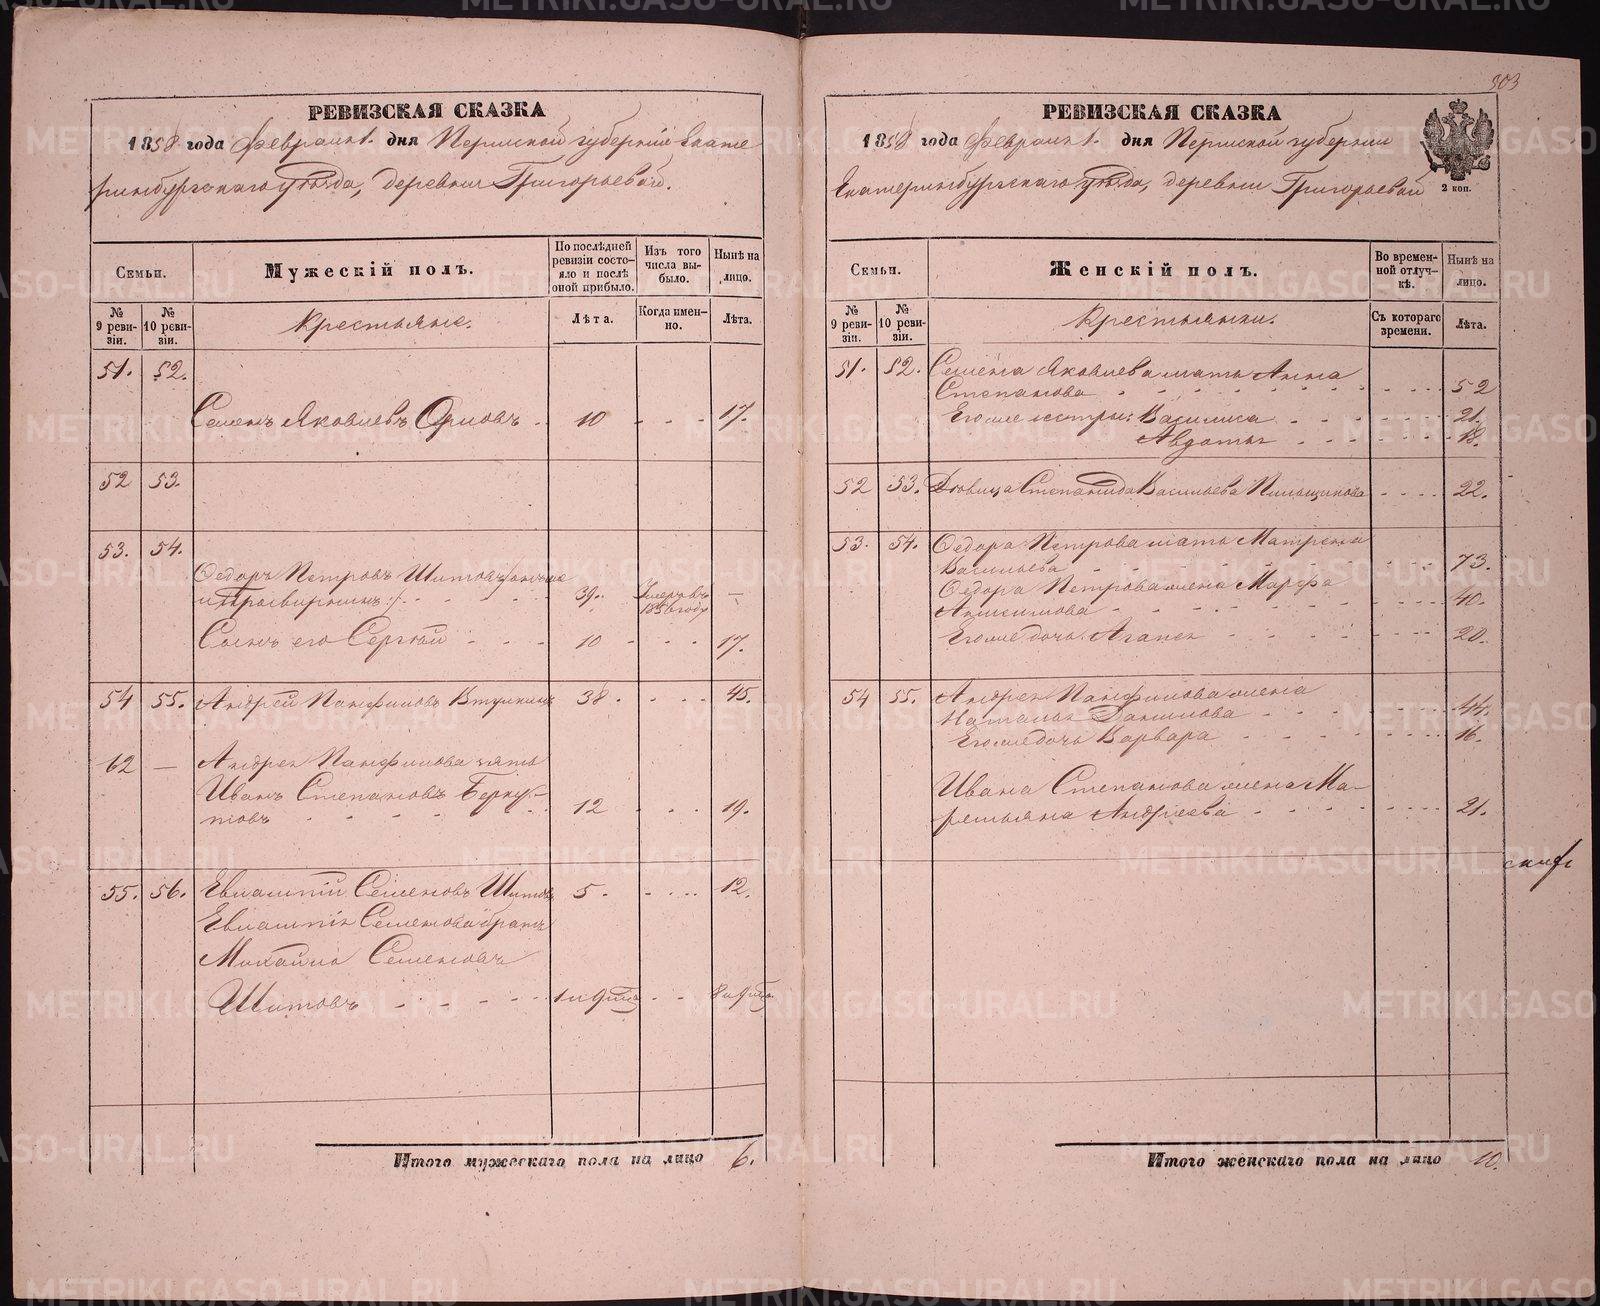 303
РЕВИЗСКАЯ СКАЗКА
1858 года Февраля 1. дня Пермской губернии Екате
ринбургскаго уѣзда, деревни Григорьевой.
Семьи.
Мужескій полъ.
По послѣдней ревизіи состояло и послѣ оной прибыло.
Изъ того числа выбыло.
Нынѣ на лицо.
№ 9 ревизіи.
№ 10 ревизіи.
Крестьяне.
Лѣта.
Когда именно.
Лѣта.
51. 52.
Семенъ Яковлевъ Орловъ 10 17.
52 53.
53. 54.
Ѳедоръ Петровъ Шитовъ
39. Умеръ въ 1850 году —
Сынъ его Сергѣй 10 17.
54 55. Андрей Панфиловъ Втулкинъ 38 45.
62 — Андрея Панфилова зять
Иванъ Степановъ Беркутовъ 12 19.
55. 56. Евлампій Семеновъ Шитовъ 5 12.
Евлампія Семенова братъ
Михайло Семеновъ
Шитовъ
Итого мужескаго пола на лицо 6.
РЕВИЗСКАЯ СКАЗКА
1858 года Февраля 1. дня Пермской губернии
Екатеринбургскаго уѣзда, деревни Григорьевой
2 коп.
Семьи.
Женскій полъ.
Во временной отлучкѣ.
Нынѣ на лицо.
№ 9 ревизіи.
№ 10 ревизіи.
Крестьянки.
Съ котораго времени.
Лѣта.
51. 52. Семёна Яковлева мать Анна
Степанова 52
Его же сестры: Василиса 21.
Авдотья 18.
52 53. Дѣвица Степанида Васильева Пильщикова 22.
53. 54. Ѳедора Петрова мать Матрена
Васильева 73.
Ѳедора Петрова жена Марфа
Анисимова 40.
Его же дочь Агапея 20.
54 55. Андрея Панфилова жена
Наталья Данилова 44.
Его же дочь Варвара 16.
Ивана Степанова жена Ма-
ремьяна Андреева 21.
Итого женскаго пола на лицо 10.
METRIKI.GASO-URAL.RU